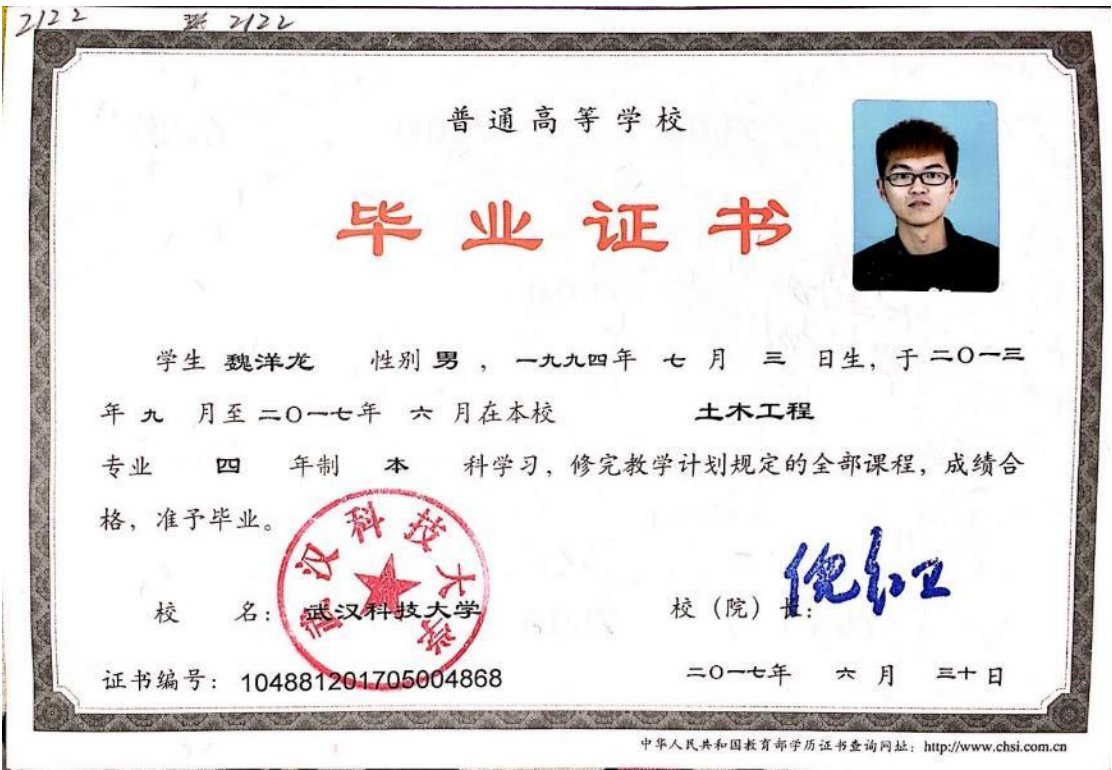 2122 2122
普通高等学校
毕业证书
学生 魏洋龙 性别 男 ，一九九四年 七 月 三 日生，于 二〇一三
年 九 月至 二〇一七年 六 月在本校 土木工程
专业 四 年制 本 科学习，修完教学计划规定的全部课程，成绩合
格，准予毕业。
武汉科技大学
校 名：武汉科技大学 校（院）长：倪红卫
证书编号：104881201705004868 二〇一七年 六 月 三十 日
中华人民共和国教育部学历证书查询网址：http://www.chsi.com.cn